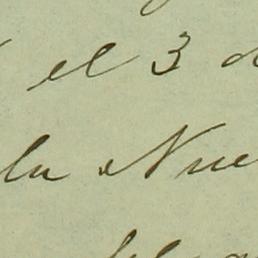 el 3 d
la Nue